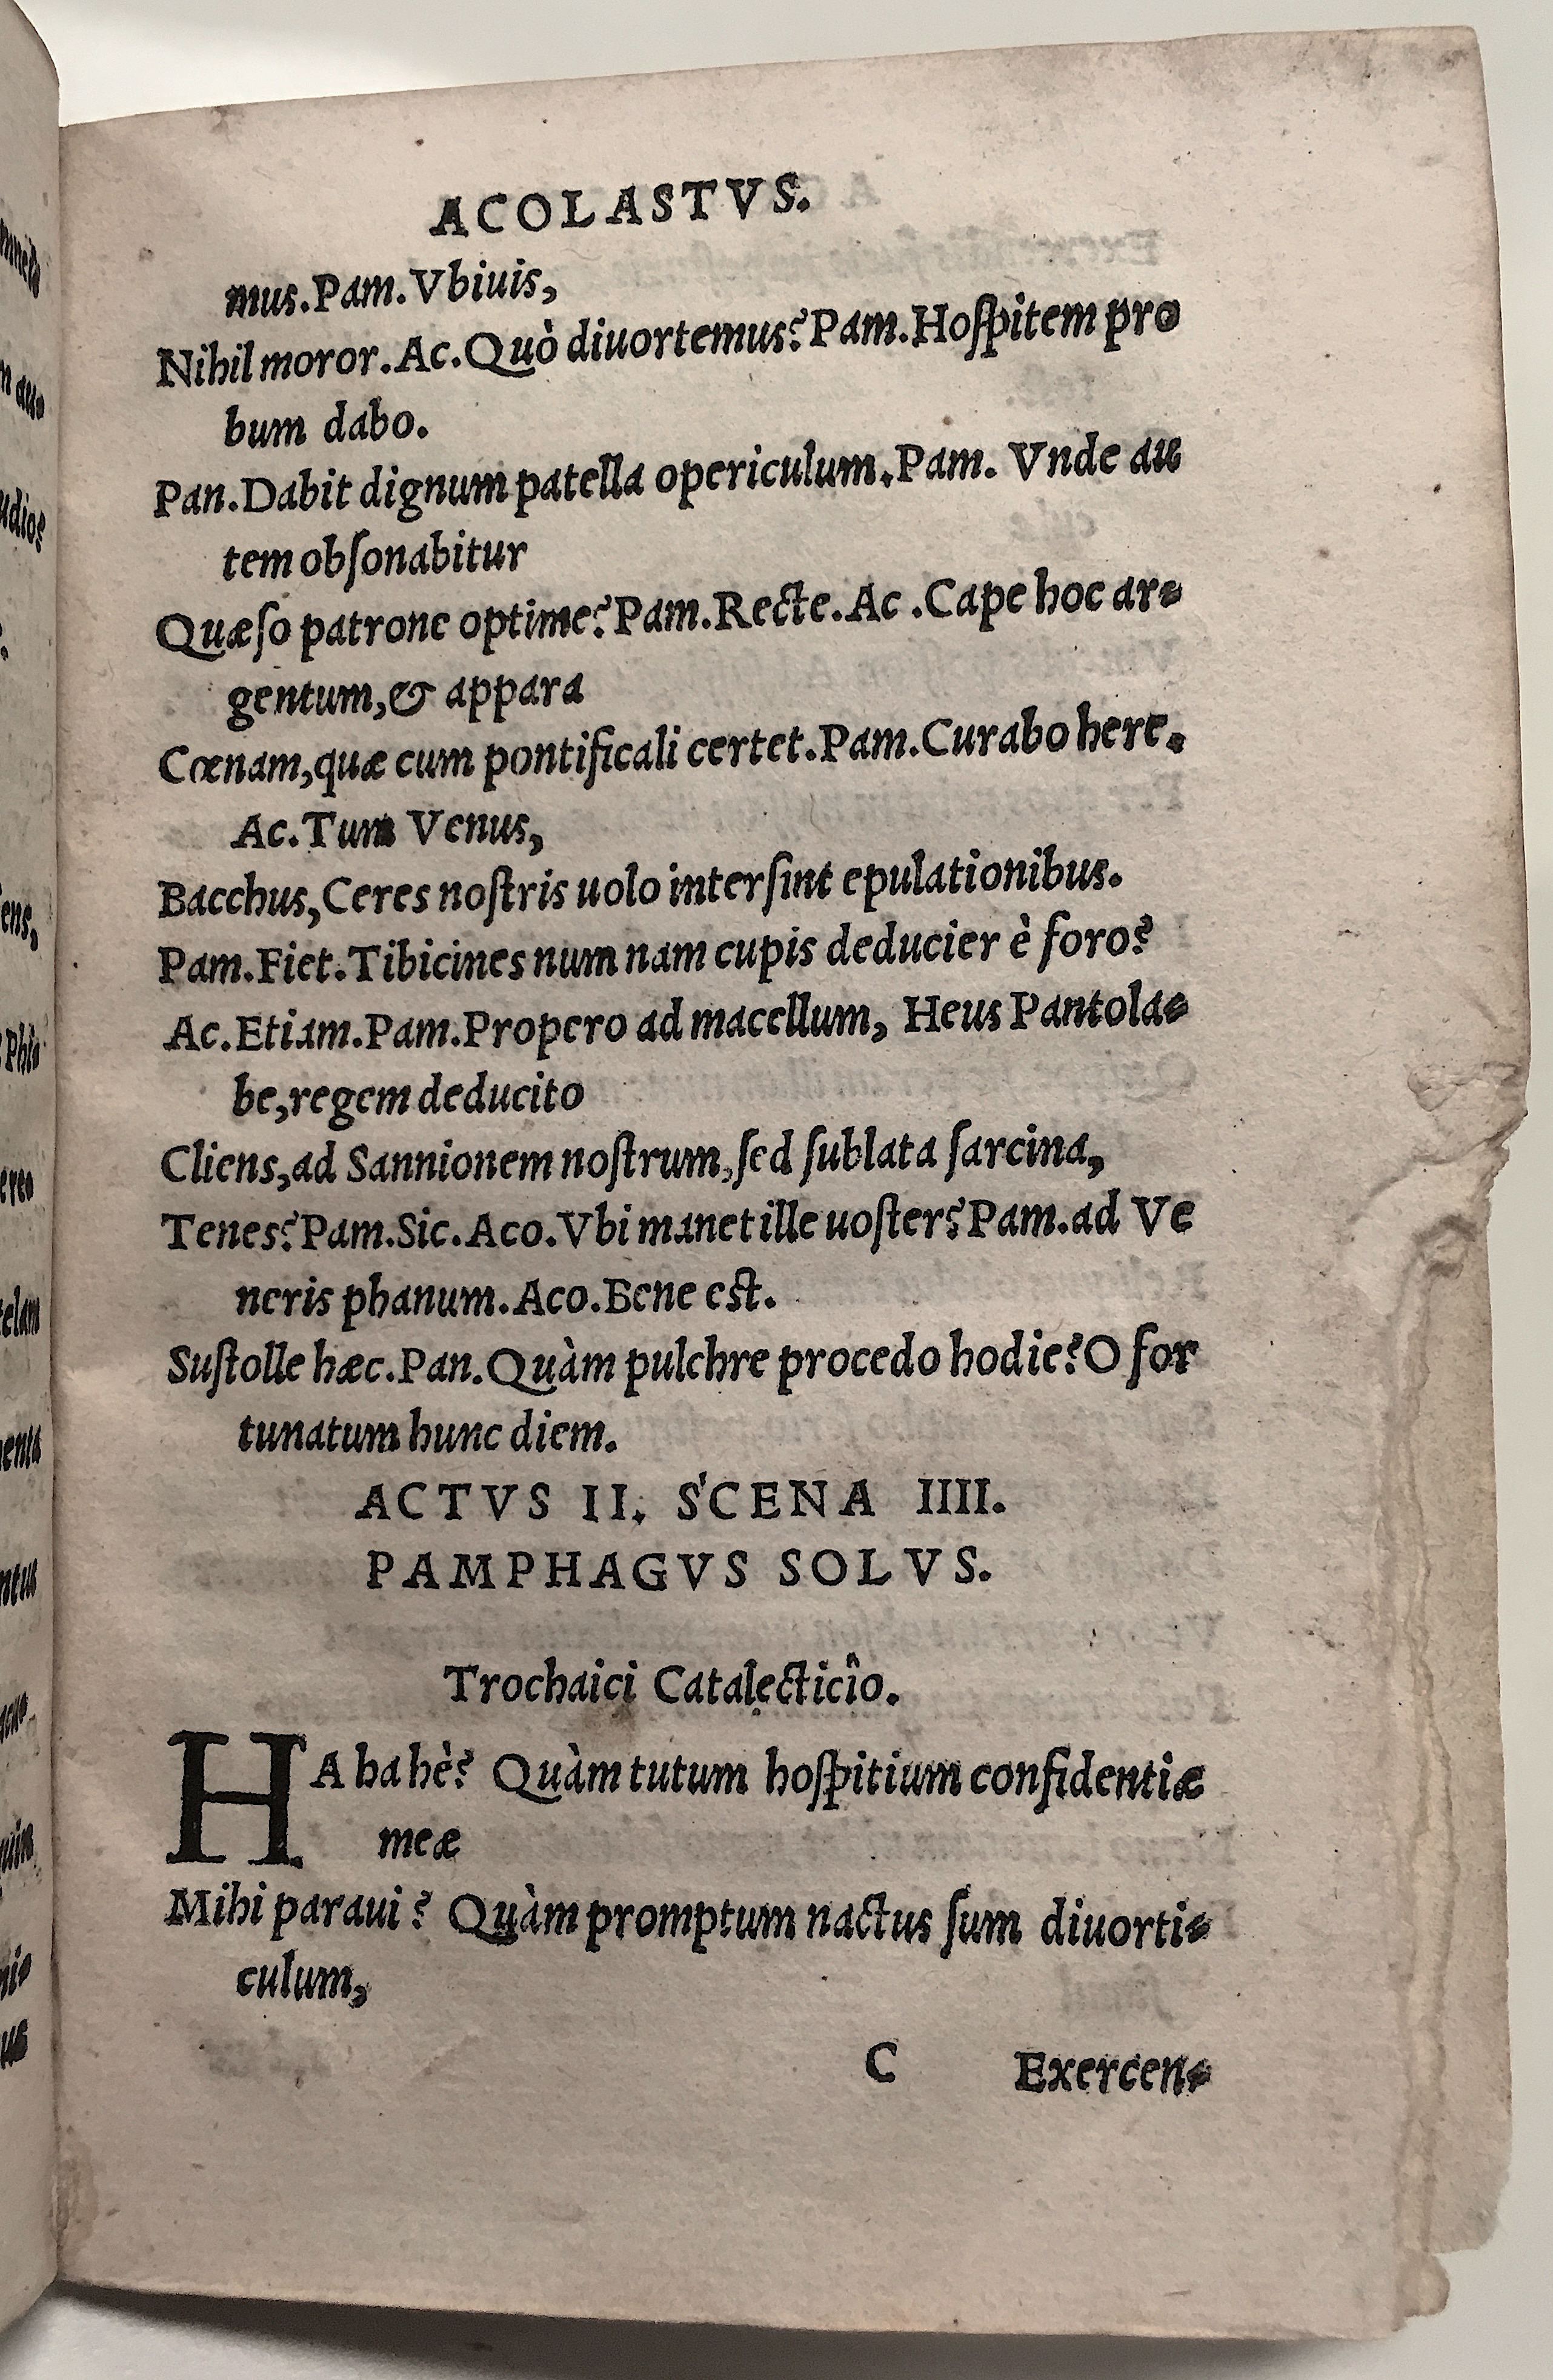 ACOLASTVS.
mus.Pam.Vbiuis,
Nihil moror.Ac.Quò diuortemus?Pam.Hoſpitem pro
bum dabo.
Pan.Dabit dignum patella opericulum.Pam. Vnde au
tem obſonabitur
Quæſo patrone optime?Pam.Recte.Ac .Cape hoc ar-
gentum,& appara
Cœnam,quæ cum pontificali certet.Pam.Curabo here.
Ac.Tum Venus,
Bacchus,Ceres noſtris uolo interſint epulationibus.
Pam.Fiet.Tibicines num nam cupis deducier è foro?
Ac.Etiam.Pam.Propero ad macellum, Heus Pantola-
be,regem deducito
Cliens,ad Sannionem noſtrum,ſed ſublata ſarcina,
Tenes?Pam.Sic.Aco.Vbi manet ille uoſter?Pam.ad Ve
neris phanum.Aco.Bene eſt.
Suſtolle hæc.Pan.Quàm pulchre procedo hodie?O for
tunatum hunc diem.
ACTVS II. SCENA IIII.
PAMPHAGVS SOLVS.
Trochaici Catalecticîo.
HA ha hè? Quàm tutum hoſpitium confidentiæ
meæ
Mihi paraui? Quàm promptum nactus ſum diuorti-
culum,
C Exercen-